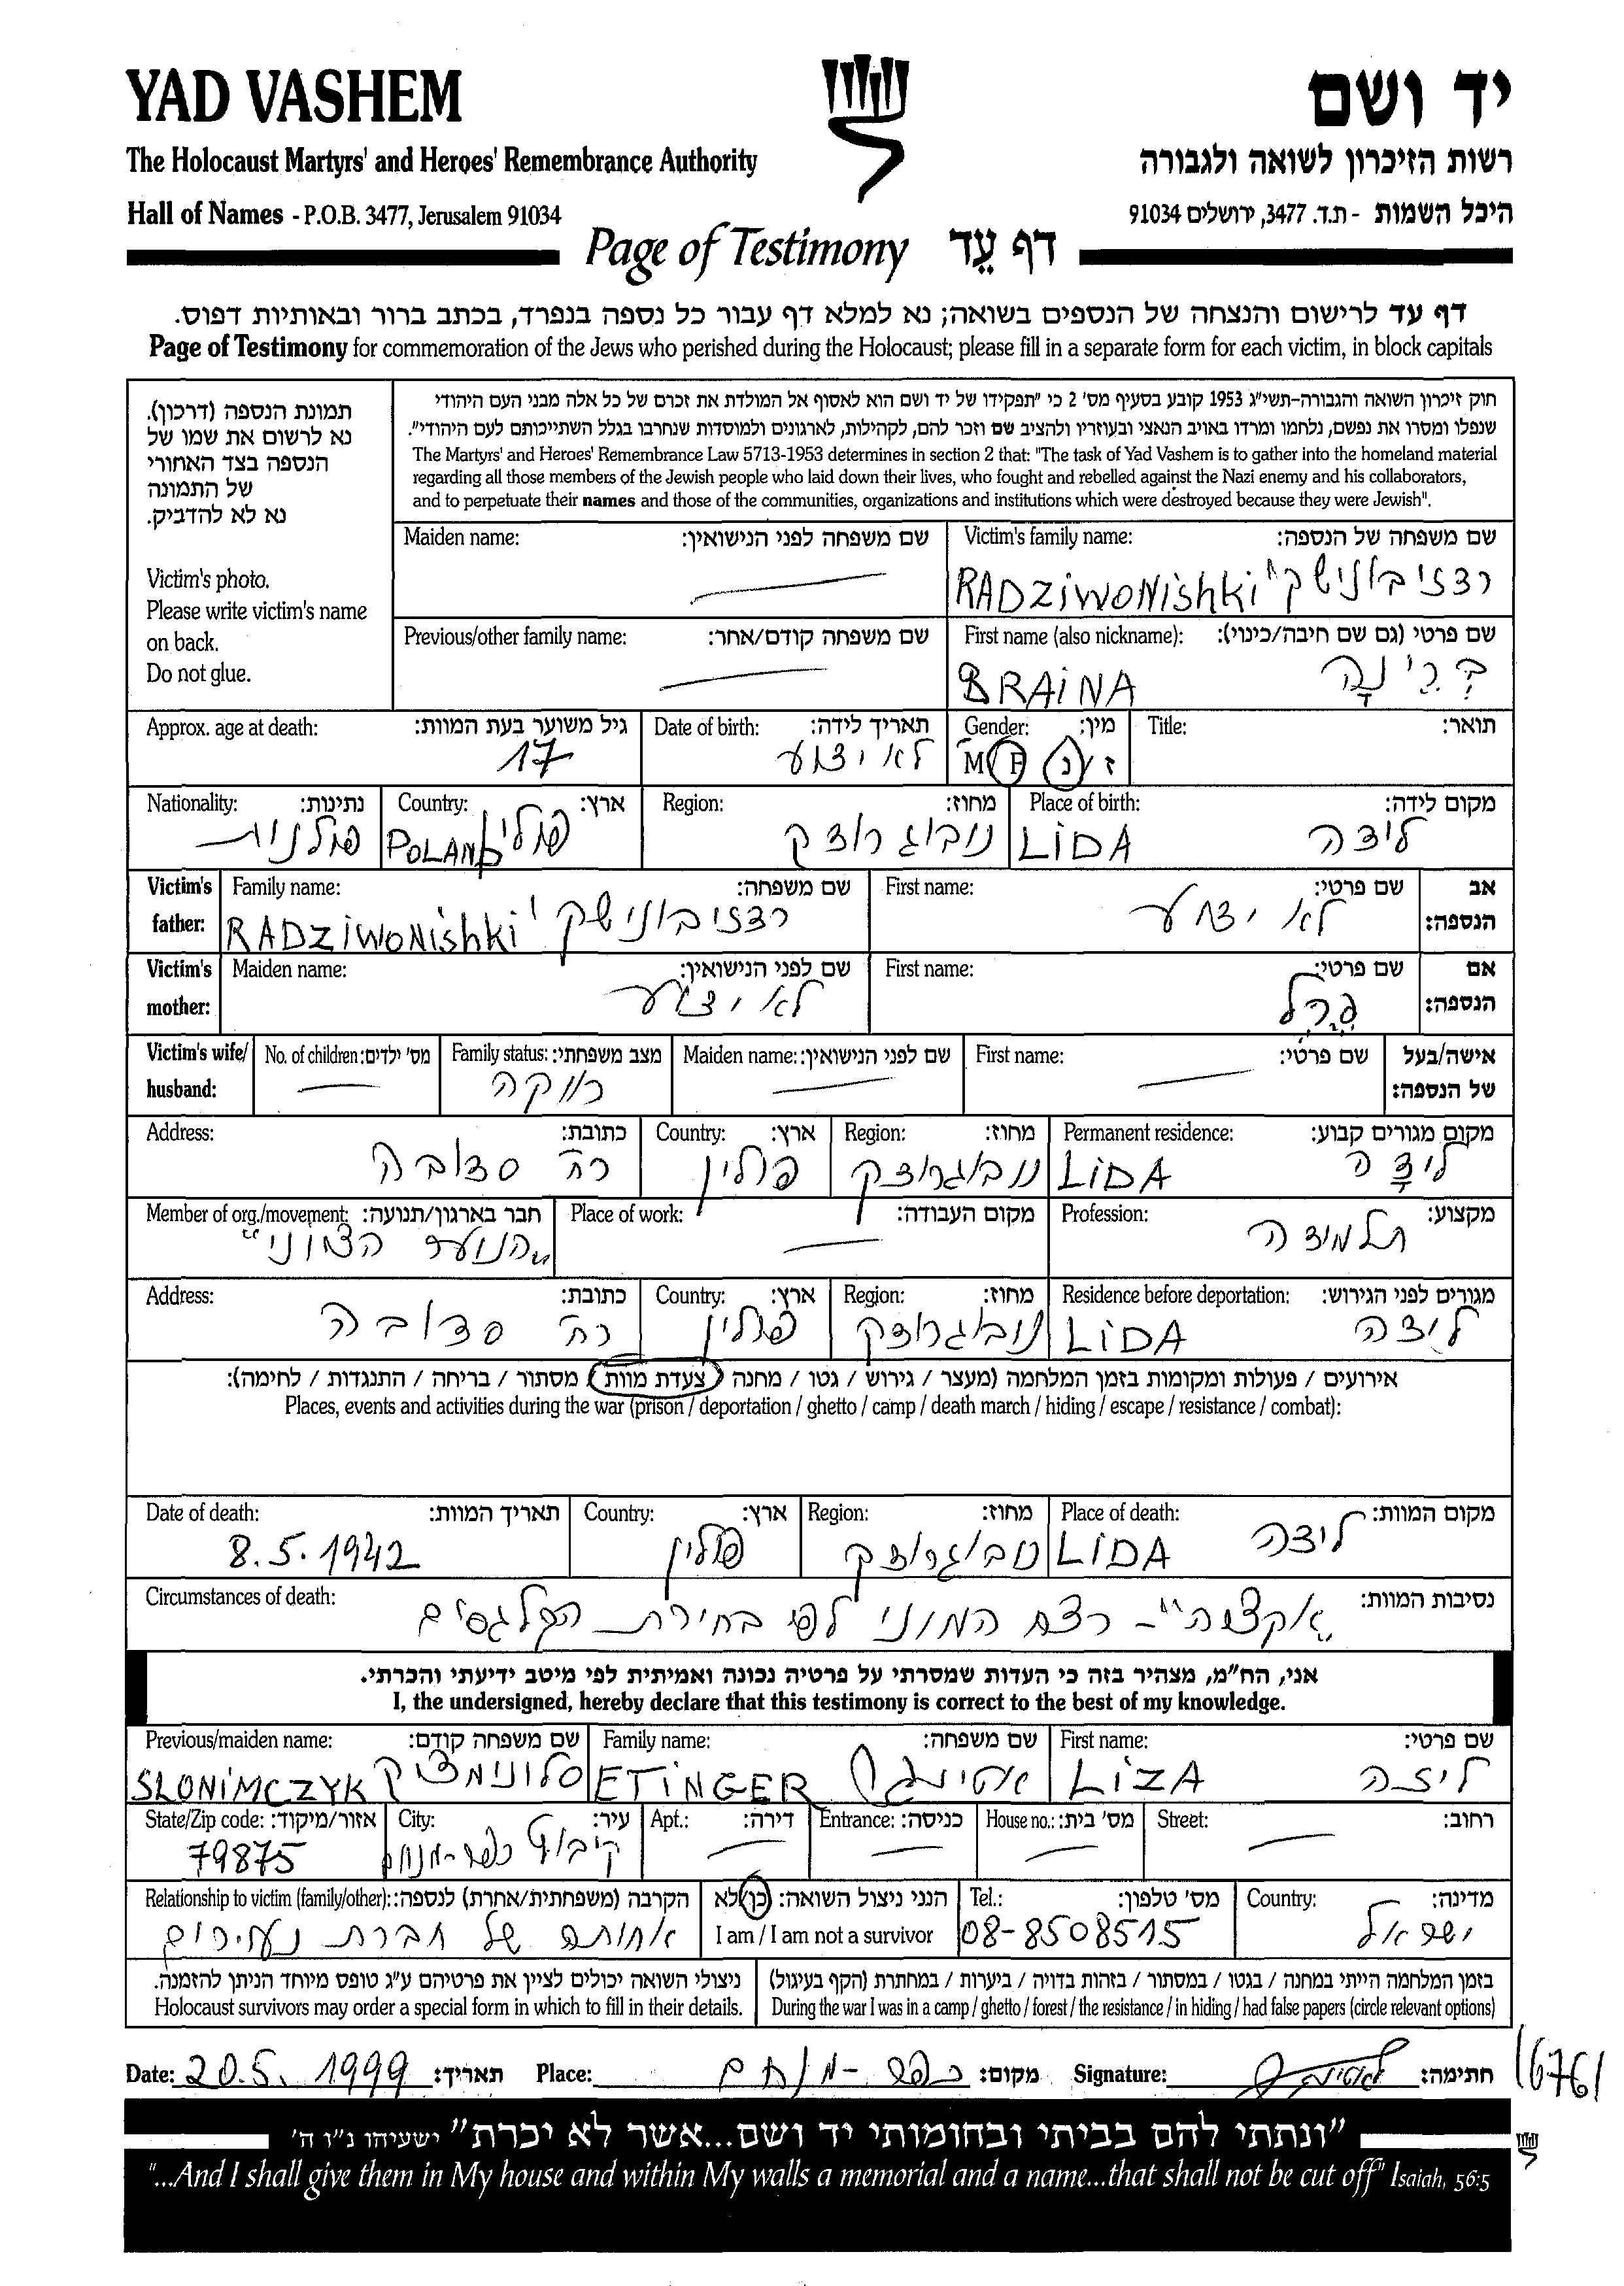 YAD VASHEM יד ושם
The Holocaust Martyrs' and Heroes' Remembrance Authority רשות הזיכרון לשואה ולגבורה
Hall of Names - P.O.B. 3477, Jerusalem 91034 היכל השמות - ת.ד. 3477, ירושלים 91034
Page of Testimony דף עֵד
דף עד לרישום והנצחה של הנספים בשואה; נא למלא דף עבור כל נספה בנפרד, בכתב ברור ובאותיות דפוס.
Page of Testimony for commemoration of the Jews who perished during the Holocaust; please fill in a separate form for each victim, in block capitals
תמונת הנספה (דרכון).
נא לרשום את שמו של
הנספה בצד האחורי
של התמונה
נא לא להדביק.
Victim's photo.
Please write victim's name
on back.
Do not glue.
חוק זיכרון השואה והגבורה-תשי"ג 1953 קובע בסעיף מס' 2 כי "תפקידו של יד ושם הוא לאסוף אל המולדת את זכרם של כל אלה מבני העם היהודי
שנפלו ומסרו את נפשם, נלחמו ומרדו באויב הנאצי ובעוזריו ולהציב שם וזכר להם, לקהילות, לארגונים ולמוסדות שנחרבו בגלל השתייכותם לעם היהודי".
The Martyrs' and Heroes' Remembrance Law 5713-1953 determines in section 2 that: "The task of Yad Vashem is to gather into the homeland material
regarding all those members of the Jewish people who laid down their lives, who fought and rebelled against the Nazi enemy and his collaborators,
and to perpetuate their names and those of the communities, organizations and institutions which were destroyed because they were Jewish".
Maiden name: שם משפחה לפני הנישואין: Victim's family name: שם משפחה של הנספה:
RADZiWONishki רדזיבונישקי
Previous/other family name: שם משפחה קודם/אחר: First name (also nickname): שם פרטי (גם שם חיבה/כינוי):
BRAiNA בְּרַיְנָה
Approx. age at death: גיל משוער בעת המוות: Date of birth: תאריך לידה: Gender: מין: Title: תואר:
17 לא ידוע M F ז / נ
Nationality: נתינות: Country: ארץ: Region: מחוז: Place of birth: מקום לידה:
פולנית POLAND פולין נובוגרודק LiDA לידה
Victim's father: Family name: שם משפחה: First name: שם פרטי: אב הנספה:
RADZiWONishki רדזיבונישקי לא ידוע
Victim's mother: Maiden name: שם לפני הנישואין: First name: שם פרטי: אם הנספה:
לא ידוע פֶּרֶל
Victim's wife/ husband: No. of children: מס' ילדים: Family status: מצב משפחתי: Maiden name: שם לפני הנישואין: First name: שם פרטי: אישה/בעל של הנספה:
רווקה
Address: כתובת: Country: ארץ: Region: מחוז: Permanent residence: מקום מגורים קבוע:
רח' סדובה פולין נובוגרודק LiDA לידה
Member of org./movement: חבר בארגון/תנועה: Place of work: מקום העבודה: Profession: מקצוע:
"הנוער הציוני" תלמידה
Address: כתובת: Country: ארץ: Region: מחוז: Residence before deportation: מגורים לפני הגירוש:
רח' סדובה פולין נובוגרודק LiDA לידה
אירועים / פעולות ומקומות בזמן המלחמה (מעצר / גירוש / גטו / מחנה / צעדת מוות / מסתור / בריחה / התנגדות / לחימה):
Places, events and activities during the war (prison / deportation / ghetto / camp / death march / hiding / escape / resistance / combat):
Date of death: תאריך המוות: Country: ארץ: Region: מחוז: Place of death: מקום המוות:
8.5.1942 פולין נובוגרודק LiDA לידה
Circumstances of death: נסיבות המוות:
"אקציה" - רצח המוני לפי בחירת הקלגסים
אני, הח"מ, מצהיר בזה כי העדות שמסרתי על פרטיה נכונה ואמיתית לפי מיטב ידיעתי והכרתי.
I, the undersigned, hereby declare that this testimony is correct to the best of my knowledge.
Previous/maiden name: שם משפחה קודם: Family name: שם משפחה: First name: שם פרטי:
SLONiMCZYK סלונימציק ETiNGER אטינגר LiZA ליזה
State/Zip code: אזור/מיקוד: City: עיר: Apt.: דירה: Entrance: כניסה: House no.: מס' בית: Street: רחוב:
79875 קיבוץ כפר-מנחם
Relationship to victim (family/other): הקרבה (משפחתית/אחרת) לנספה: הנני ניצול השואה: כן לא Tel.: מס' טלפון: Country: מדינה:
אחותה של חברת נעורים I am / I am not a survivor 08-8508515 ישראל
ניצולי השואה יכולים לציין את פרטיהם ע"ג טופס מיוחד הניתן להזמנה. בזמן המלחמה הייתי במחנה / בגטו / במסתור / בזהות בדויה / ביערות / במחתרת (הקף בעיגול)
Holocaust survivors may order a special form in which to fill in their details. During the war I was in a camp / ghetto / forest / the resistance / in hiding / had false papers (circle relevant options)
Date: 20.5.1999 תאריך: Place: כפר-מנחם מקום: Signature: חתימה:
"ונתתי להם בביתי ובחומותי יד ושם...אשר לא יכרת" ישעיהו נ"ו ה'
"...And I shall give them in My house and within My walls a memorial and a name...that shall not be cut off" Isaiah, 56:5